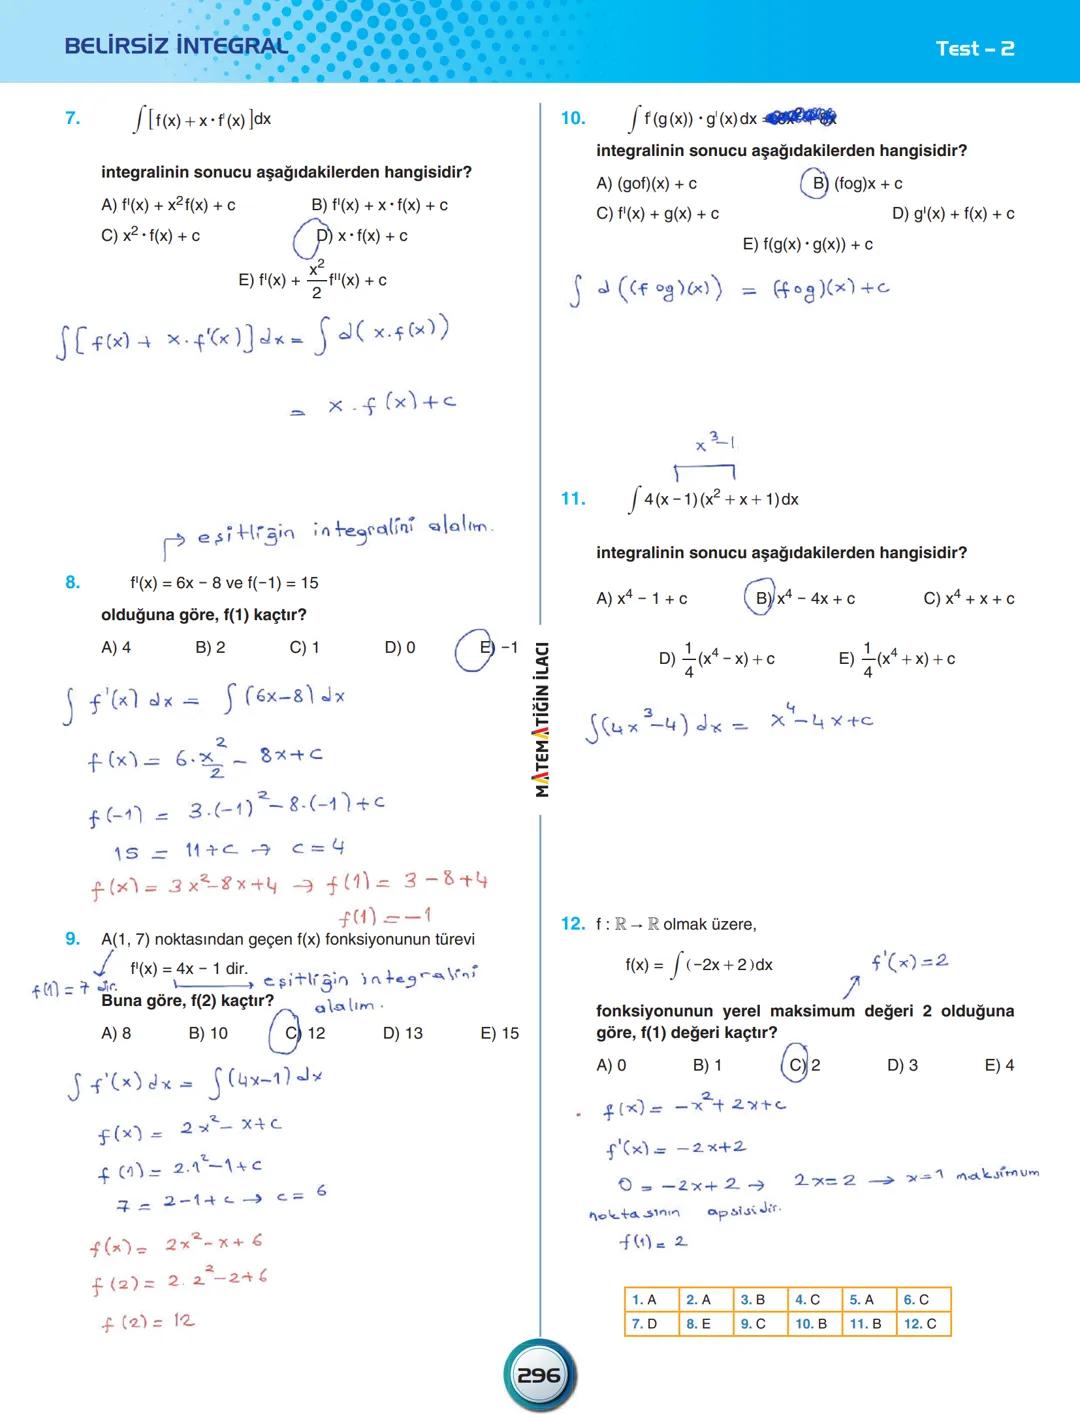 BELİRSİZ İNTEGRAL
Test – 2
7. ∫[f(x) + x·f'(x)]dx
integralinin sonucu aşağıdakilerden hangisidir?
A) f'(x) + x²f(x) + c B) f'(x) + x·f(x) + c
C) x²·f(x) + c D) x·f(x) + c
E) f'(x) + x²/2 f''(x) + c
∫[f(x) + x.f'(x)]dx = ∫d(x.f(x))
= x.f(x)+c
eşitliğin integralini alalım.
8. f'(x) = 6x – 8 ve f(–1) = 15
olduğuna göre, f(1) kaçtır?
A) 4 B) 2 C) 1 D) 0 E) –1
∫f'(x)dx = ∫(6x–8)dx
f(x) = 6.x²/2 – 8x+c
f(-1) = 3.(-1)²–8.(-1)+c
15 = 11+c → c=4
f(x) = 3x²–8x+4 → f(1) = 3–8+4
f(1) = –1
9. A(1, 7) noktasından geçen f(x) fonksiyonunun türevi
f'(x) = 4x – 1 dir.
eşitliğin integralini
f(1) = 7 dir.
Buna göre, f(2) kaçtır?
alalım.
A) 8 B) 10 C) 12 D) 13 E) 15
∫f'(x)dx = ∫(4x–1)dx
f(x) = 2x²–x+c
f(1) = 2.1²–1+c
7 = 2–1+c → c = 6
f(x) = 2x²–x+6
f(2) = 2.2²–2+6
f(2) = 12
MATEMATİĞİN İLACI
10. ∫f'(g(x))·g'(x)dx
integralinin sonucu aşağıdakilerden hangisidir?
A) (gof)(x) + c B) (fog)x + c
C) f'(x) + g(x) + c D) g'(x) + f(x) + c
E) f(g(x)·g(x)) + c
∫d((fog)(x)) = (fog)(x)+c
x³–1
11. ∫4(x – 1)(x² + x + 1)dx
integralinin sonucu aşağıdakilerden hangisidir?
A) x⁴ – 1 + c B) x⁴ – 4x + c C) x⁴ + x + c
D) 1/4(x⁴ – x) + c E) 1/4(x⁴ + x) + c
∫(4x³–4)dx = x⁴–4x+c
12. f : ℝ → ℝ olmak üzere,
f(x) = ∫(–2x + 2)dx
f'(x)=2
fonksiyonunun yerel maksimum değeri 2 olduğuna
göre, f(1) değeri kaçtır?
A) 0 B) 1 C) 2 D) 3 E) 4
f(x) = –x²+2x+c
f'(x) = –2x+2
0 = –2x+2 → 2x=2 → x=1 maksimum
noktasının apsisidir.
f(1) = 2
1. A 2. A 3. B 4. C 5. A 6. C
7. D 8. E 9. C 10. B 11. B 12. C
296